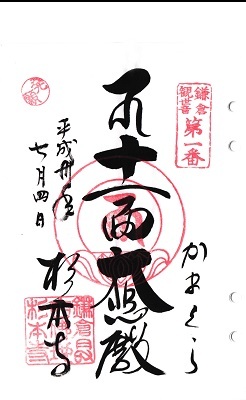 鎌倉
観世音
第一番
かまくら
十一面大悲殿
平成卅年
七月四日
杉本寺